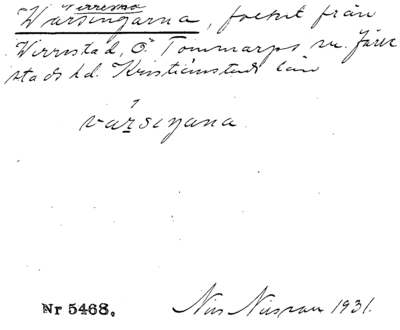 Wirrestad
Wärsingarna, folket från
Wirrestad, Ö. Tommarps sn. Järre-
stads hd. Kristianstads län
vársiŋana
Nr 5468. Nils Nilsson 1931.